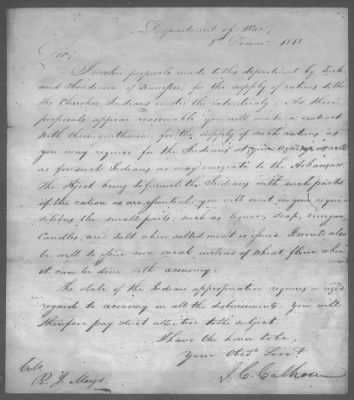 Department of War,
8 Decemr. 1818
Sir,
I enclose proposals made to this department by
and Henderson of Tennessee, for the supply of rations to
the Cherokee Indians under the late treaty. As these
proposals appear reasonable you will make a contract
with these gentlemen for the supply of such rations as
you may require for the Indians at your agency as well
as for such Indians as may emigrate to the Arkansaw.
The object being to furnish the Indians with such parts
of the ration as are essential, you will omit in your requi-
sitions the small parts, such as liquor, soap, vinegar,
Candles, and salt when salted meat is issued. It would also
be well to issue corn meal instead of wheat flour, when
it can be done with economy.
The state of the Indian appropriation requires a rigid
regard to economy in all the disbursements. You will
therefore pay strict attention to the subject.
I have the honor to be,
Your Obedt. Servt.
J. C. Calhoun
Colo.
R. J. Meigs